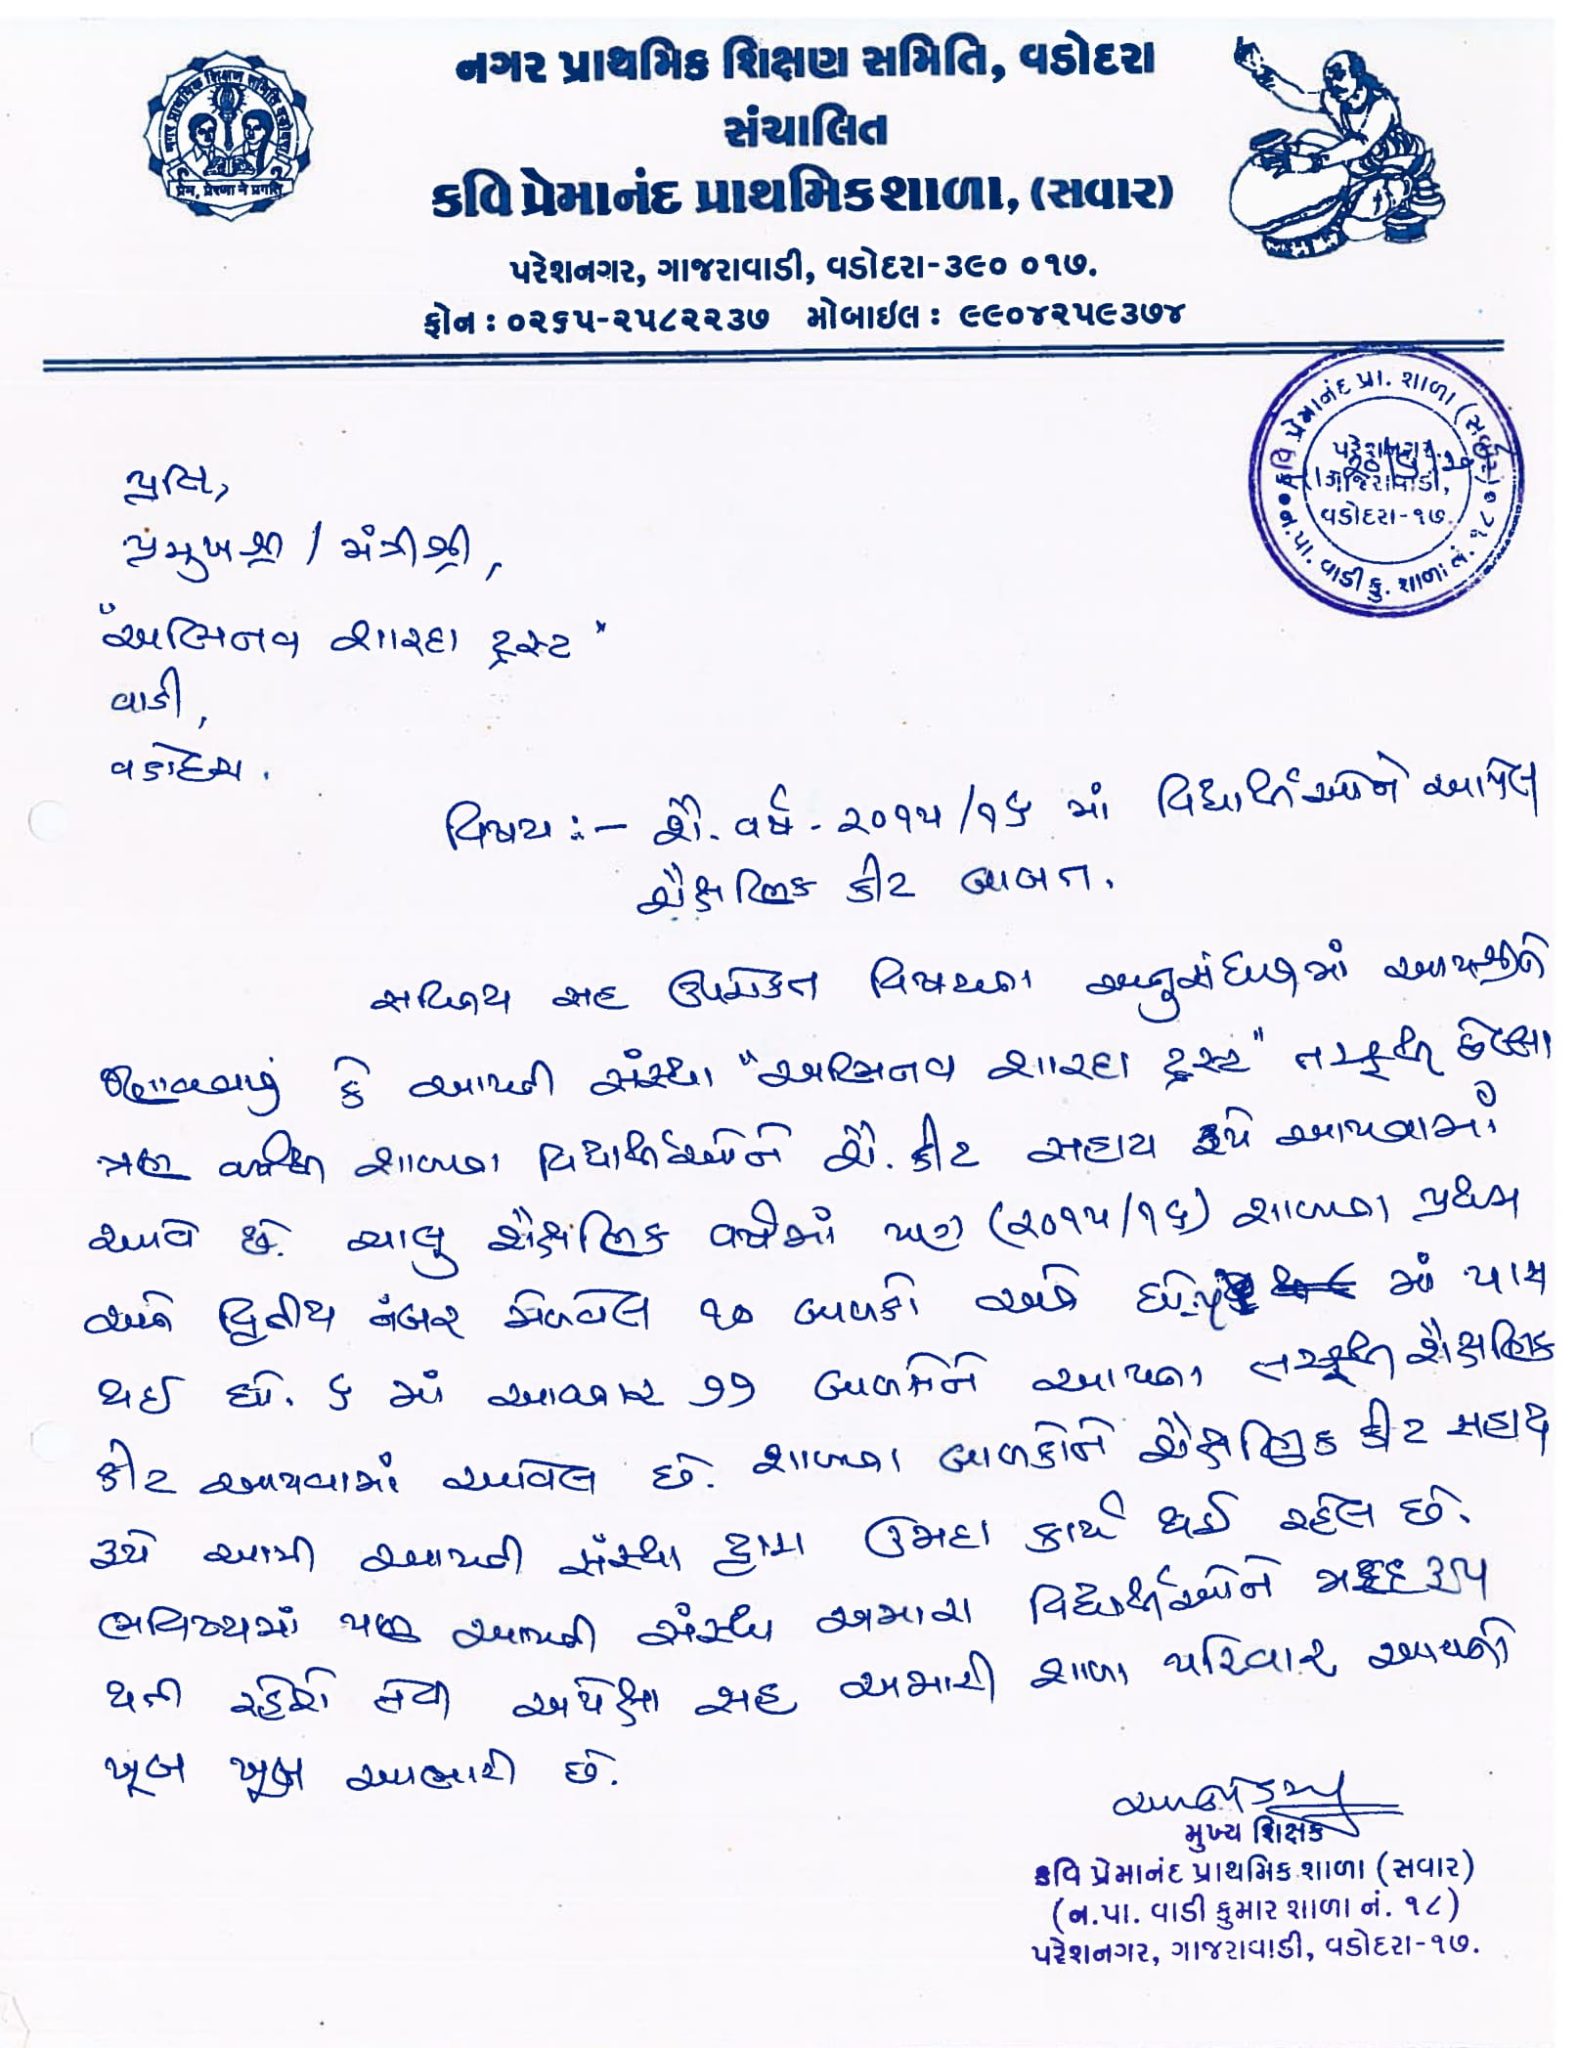 નગર પ્રાથમિક શિક્ષણ સમિતિ, વડોદરા
સંચાલિત
કવિ પ્રેમાનંદ પ્રાથમિક શાળા, (સવાર)
પરેશનગર, ગાજરાવાડી, વડોદરા-૩૯૦ ૦૧૭.
ફોન : ૦૨૬૫-૨૫૮૨૨૩૭ મોબાઈલ : ૯૯૦૪૨૫૯૩૭૪
નગર પ્રાથમિક શિક્ષણ સમિતિ વડોદરા
પ્રેમ, પ્રેરણા ને પ્રગતિ
કવિ પ્રેમાનંદ પ્રા. શાળા (સવાર)
પરેશનગર,
ગાજરાવાડી,
વડોદરા-૧૭.
ન.પા. વાડી કુ. શાળા નં. ૧૮
પ્રતિ,
પ્રમુખશ્રી / મંત્રીશ્રી,
"અભિનવ શારદા ટ્રસ્ટ"
વાડી,
વડોદરા.
વિષય :- શૈ. વર્ષ - ૨૦૧૫/૧૬ માં વિદ્યાર્થીઓને આપેલ
શૈક્ષણિક કીટ બાબત.
સવિનય સહ ઉપરોકત વિષયના અનુસંધાનમાં આપશ્રીને
જણાવવાનું કે આપની સંસ્થા "અભિનવ શારદા ટ્રસ્ટ" તરફથી છેલ્લા
ત્રણ વર્ષથી શાળાના વિદ્યાર્થીઓને શૈ. કીટ સહાય રૂપે આપવામાં
આવે છે. ચાલુ શૈક્ષણિક વર્ષમાં પણ (૨૦૧૫/૧૬) શાળાના પ્રથમ
અને દ્વિતીય નંબર મેળવેલ ૧૦ બાળકો અને ધો. માં પાસ
થઈ ધો. ૬ માં આવનાર ૭૭ બાળકોને આપના તરફથી શૈક્ષણિક
કીટ આપવામાં આવેલ છે. શાળાના બાળકોને શૈક્ષણિક કીટ સહાય
રૂપે આપી આપની સંસ્થા દ્વારા ઉમદા કાર્ય થઈ રહેલ છે.
ભવિષ્યમાં પણ આપની સંસ્થા અમારા વિદ્યાર્થીઓને મદદરૂપ
થતી રહેશે તેવી અપેક્ષા સહ અમારી શાળા પરિવાર આપનો
ખૂબ ખૂબ આભારી છે.
મુખ્ય શિક્ષક
કવિ પ્રેમાનંદ પ્રાથમિક શાળા (સવાર)
(ન.પા. વાડી કુમાર શાળા નં. ૧૮)
પરેશનગર, ગાજરાવાડી, વડોદરા-૧૭.